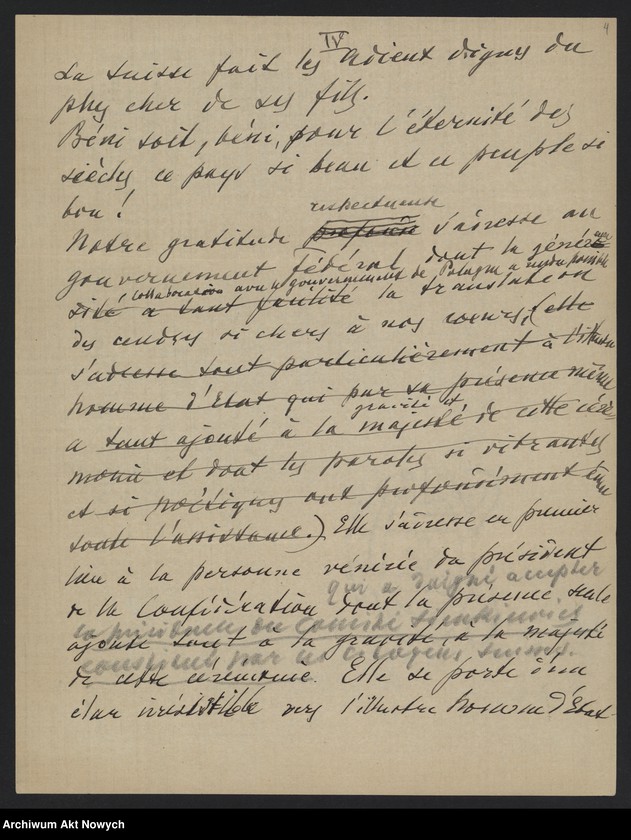 4
IV
La Suisse fait les adieux dignes du
plus cher de ses fils.
Béni soit, béni, pour l'éternité des
siècles ce pays si beau et ce peuple si
bon !
respectueuse
Notre gratitude profonde s'adresse au
gouvernement Fédéral dont la généro
collaboration avec le gouvernement de Pologne a rendu possible
sité a tant facilité la translation
des cendres si chers à nos cœurs; (elle
s'adresse tout particulièrement à l'illustre
homme d'Etat qui par sa présence même
gravité et
a tant ajouté à la majesté de cette céré-
monie et dont les paroles si vibrantes
et si poétiques ont profondément ému
toute l'assistance.) Elle s'adresse en premier
lieu à la personne vénérée du président
qui a daigné accepter
de la Confédération dont la présence seule
la présidence du Comité Sienkiewicz
ajoute tant à la gravité, à la majesté
constitué par les citoyens suisses.
de cette cérémonie. Elle se porte d'un
élan irrésistible vers l'illustre homme d'Etat
Archiwum Akt Nowych